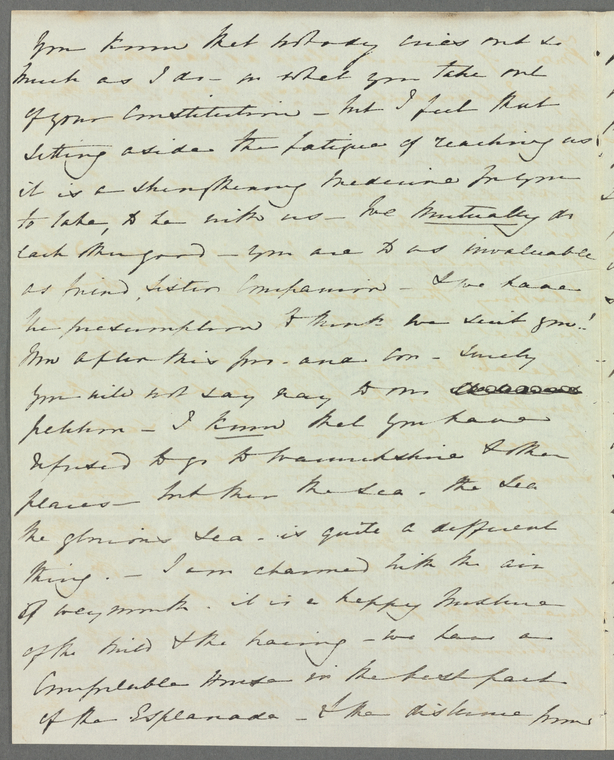 You know that nobody cries out so
much as I do - on what you take out
of your Constitution - but I feel that
setting aside the fatigue of reaching us
it is a strengthening medicine for you
to take, to be with us - We mutually do
each other good - you are to us invaluable
as friend, sister Companion - & we have
the presumption to think we suit you!
Now after this pro- and con - surely
you will not say nay to our
petition - I know that you have
refused to go to Warwickshire & other
places - but then the Sea. the Sea
the glorious Sea - is quite a different
thing. - I am charmed with the air
of Weymouth. it is a happy mixture
of the mild & the bracing - we have a
Comfortable House in the best part
of the Esplanade - & the distance from